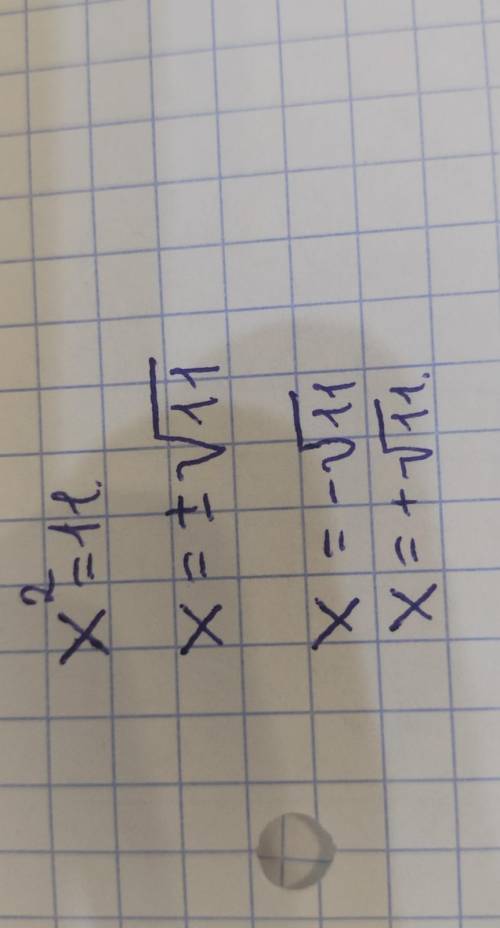 x² = 11.
x = ±√11
x = -√11
x = +√11.